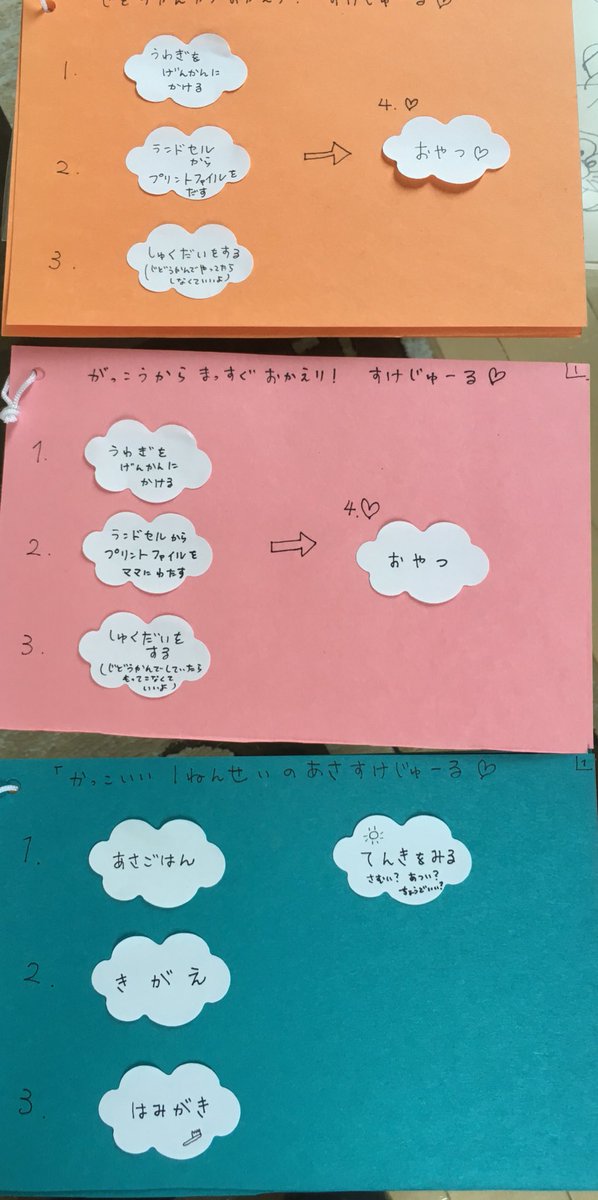 じどうかんからおかえり! すけじゅーる♡
1.
うわぎを
げんかんに
かける
2.
ランドセル
から
プリントファイルを
だす
3.
しゅくだいをする
(じどうかんでやってたら
しなくていいよ)
→
4.♡
おやつ♡
がっこうから まっすぐ おかえり! すけじゅーる♡
1
1.
うわぎを
げんかんに
かける
2.
ランドセルから
プリントファイルを
ママにわたす
3.
しゅくだいを
する
(じどうかんでしていたら
もってこなくて
いいよ)
→
4.♡
おやつ
「かっこいい 1ねんせいのあさすけじゅーる♡
1
1.
あさごはん
てんきをみる
さむい? あつい?
ちょうどいい?
2.
きがえ
3.
はみがき